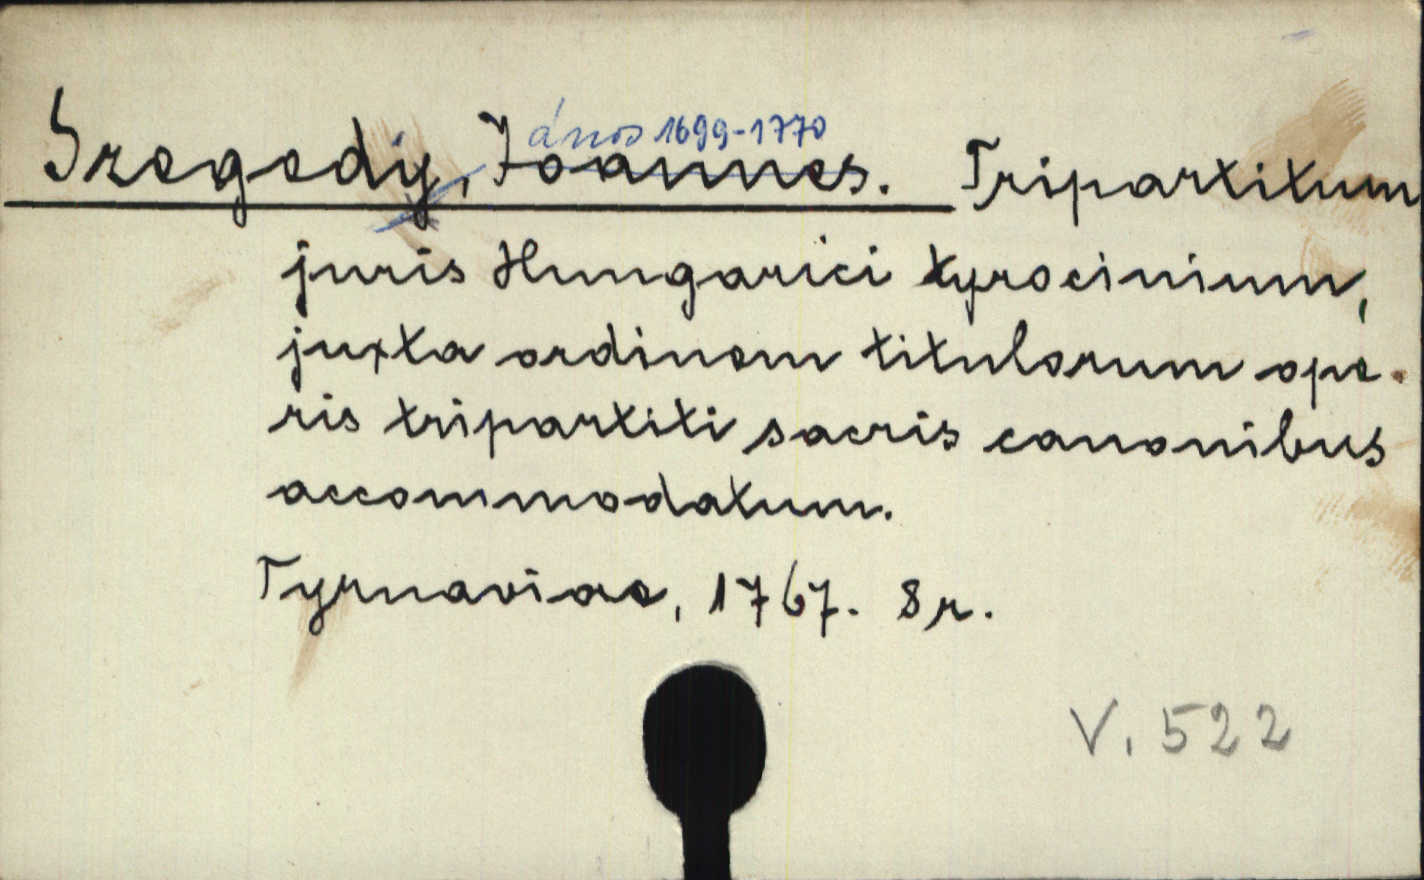 Szegedy, Joannes. János 1699-1770 Tripartitum
juris Hungarici tyrocinium,
juxta ordinem titulorum ope-
ris tripartiti sacris canonibus
accommodatum.
Tyrnaviae, 1767. 8r.
V. 522